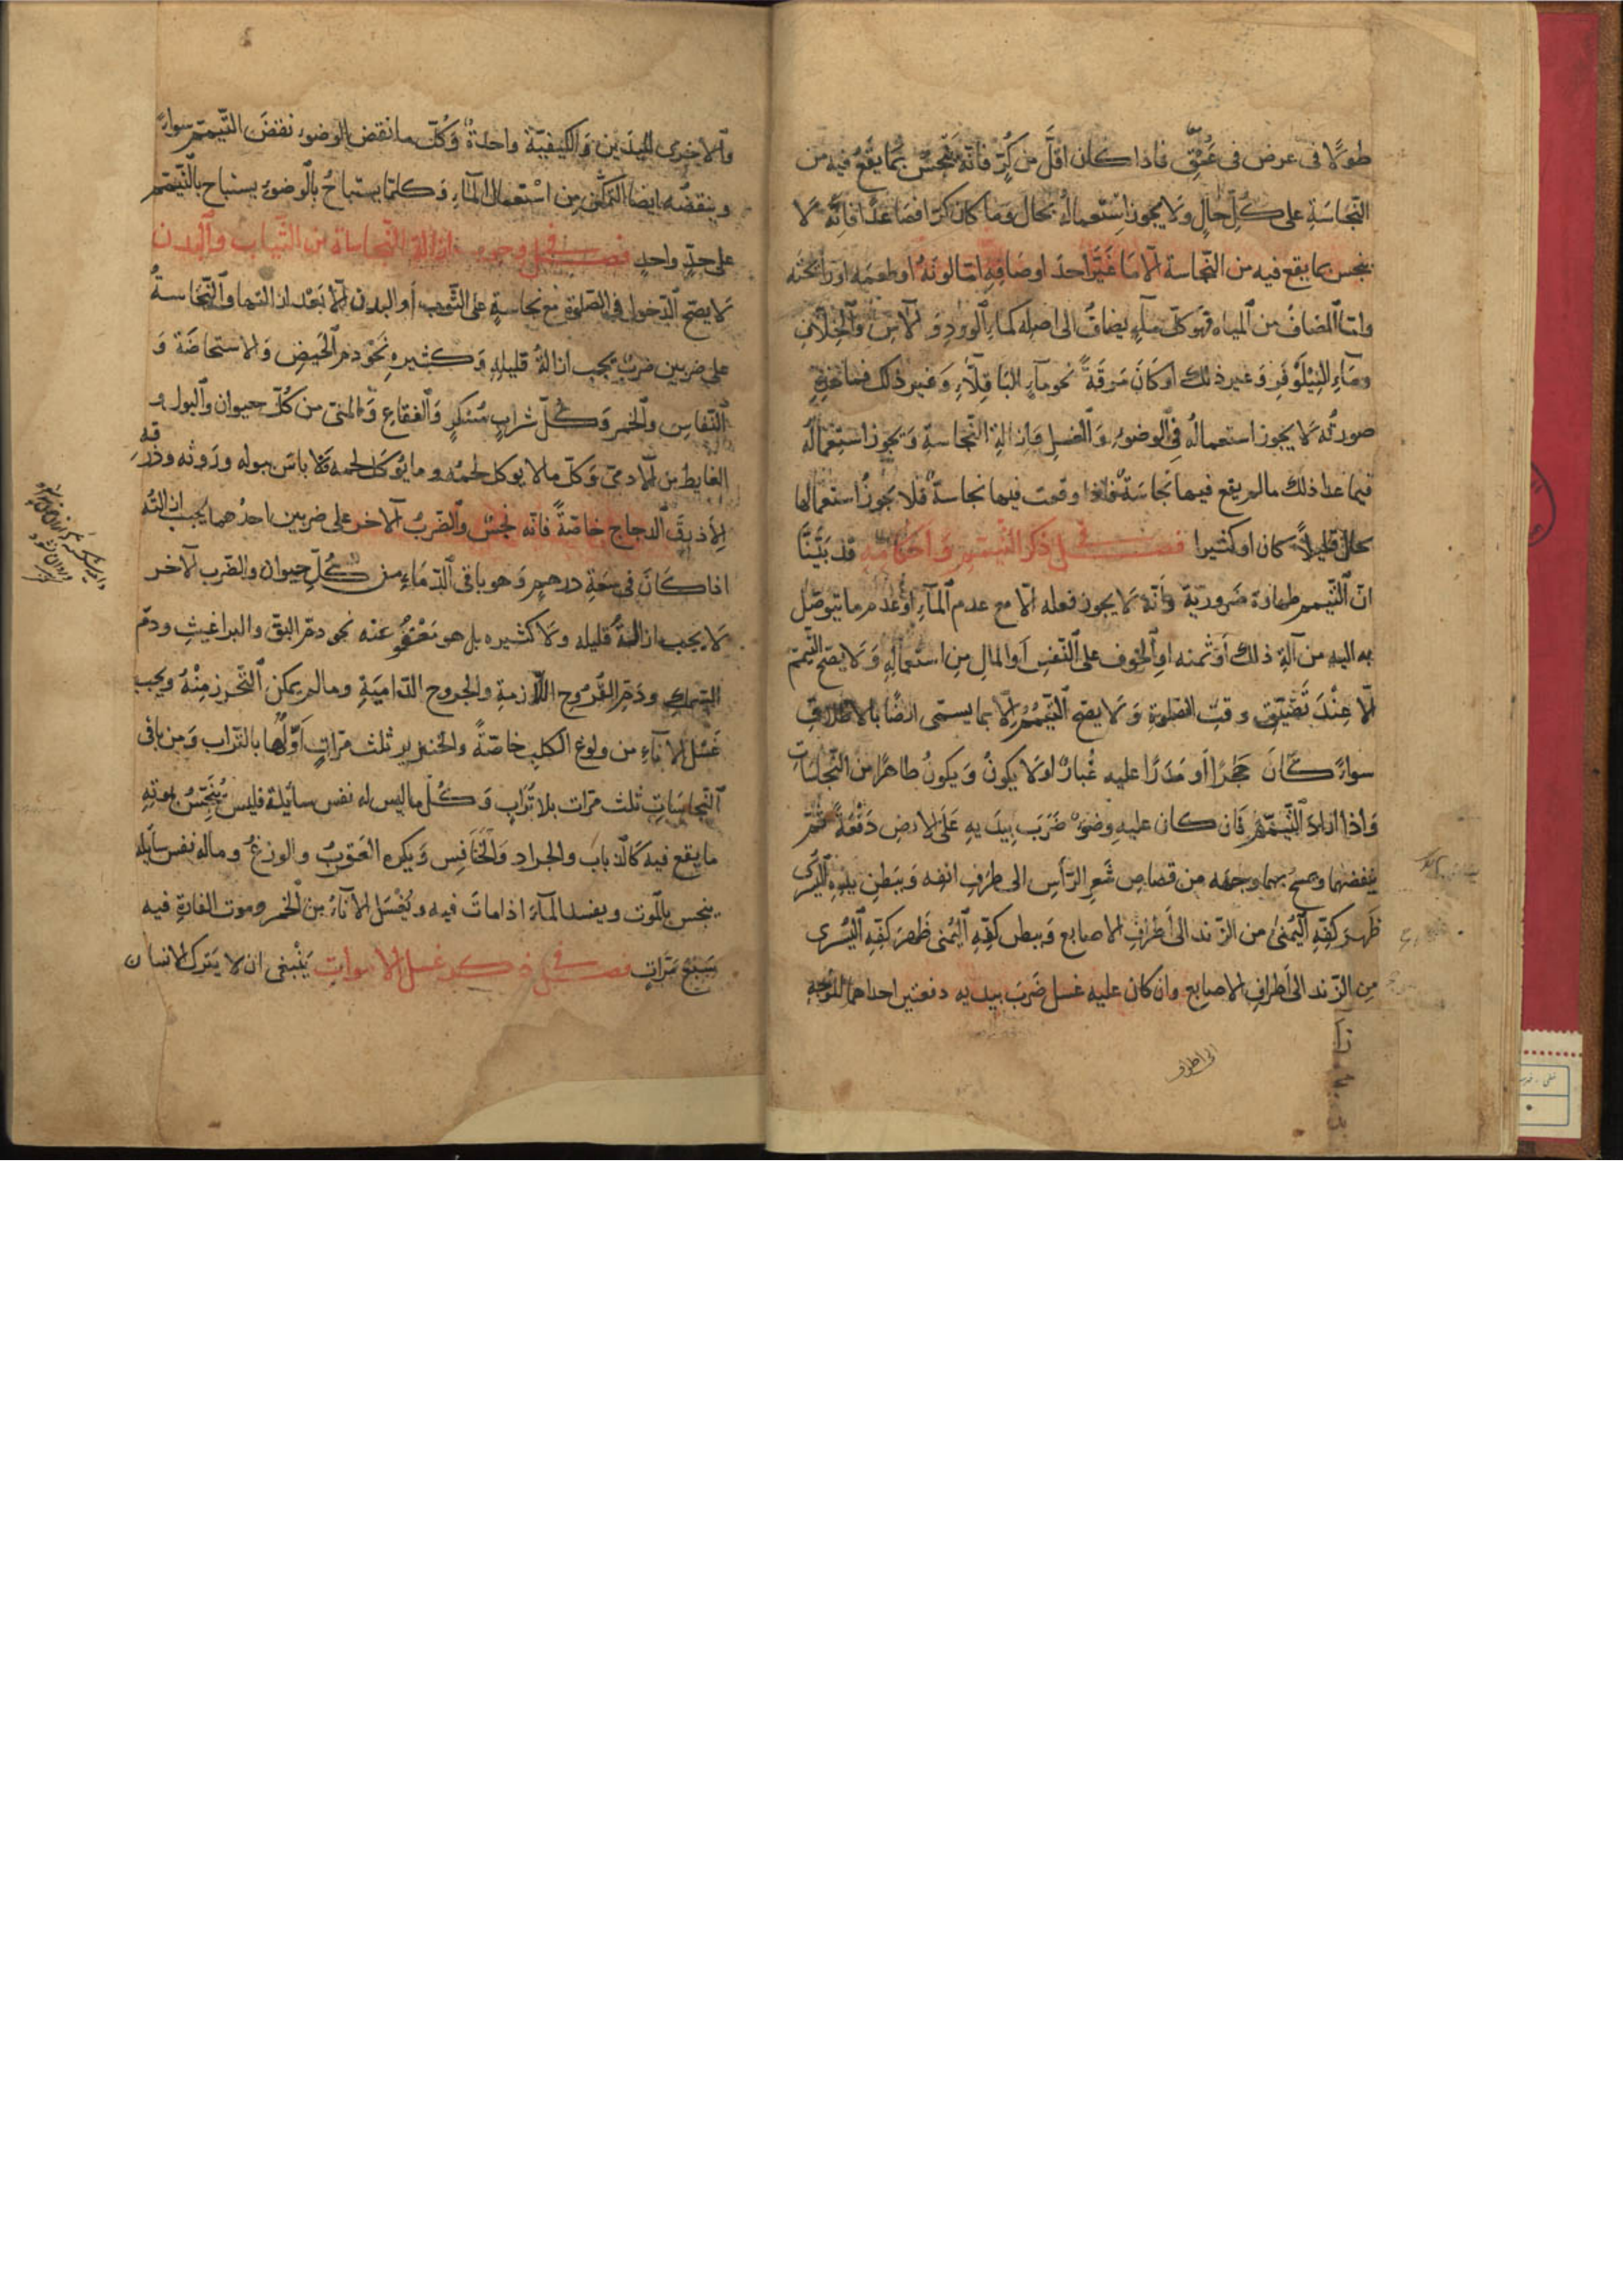 طولا فى عرض فى عمق فاذا كان اقل من كر فانه ينجس بما يقع فيه من
النجاسة على كل حال ولا يجوز استعماله بحال وما كان كرا فصاعدا فانه لا
ينجس بما يقع فيه من النجاسة الا ما غير احد اوصافه اما لونه او طعمه او رائحته
واما المضاف من المياه فهو كل ماء يضاف الى اصله كماء الورد و الآس والخلاف
وماء النيلوفر وغير ذلك او كان مرقة نحو ماء الباقلاء وغير ذلك فما
صورته لا يجوز استعماله فى الوضوء والغسل وازالة النجاسة ويجوز استعماله
فيما عدا ذلك مالم يقع فيها نجاسة فاذا وقعت فيها نجاسة فلا يجوز استعمالها
بحال قليلا كان او كثيرا فصل فى ذكر التيمم واحكامه قد بينا
ان التيمم طهارة ضرورية وانه لا يجوز فعله الا مع عدم الماء او عدم ما يتوصل
به اليه من آلة ذلك او ثمنه او الخوف على النفس او المال من استعماله ولا يصح التيمم
الا عند تضيق وقت الصلوة ولا يصح التيمم الا بما يسمى ارضا بالاطلاق
سواء كان حجرا او مدرا عليه غبار او لا يكون ويكون طاهرا من النجاسات
واذا اراد التيمم فان كان عليه وضوء ضرب بيديه على الارض دفعة ثم
ينفضهما ويمسح بهما وجهه من قصاص شعر الرأس الى طرف انفه وببطن يده اليسرى
ظهر كفه اليمنى من الزند الى اطراف الاصابع وببطن كفه اليمنى ظهر كفه اليسرى
من الزند الى اطراف الاصابع وان كان عليه غسل ضرب بيديه دفعتين احداهما للوجه
الى اطراف
والاخرى لليدين والكيفية واحدة وكل ما نقض الوضوء نقض التيمم سواء
وينقضه ايضا التمكن من استعمال الماء وكلما يستباح بالوضوء يستباح بالتيمم
على حد واحد فصل فى وجوب ازالة النجاسة من الثياب والبدن
لا يصح الدخول فى الصلوة مع نجاسة على الثوب أو البدن الا بعد ازالتها والنجاسة
على ضربين ضرب يجب ازالة قليله وكثيره نحو دم الحيض والاستحاضة و
النفاس والخمر وكل شراب مسكر والفقاع والمنى من كل حيوان والبول و
الغايط من الآدمى وكل ما لا يوكل لحمه وما يوكل لحمه فلا باس ببوله وروثه وذرقه
الا ذرق الدجاج خاصة فانه نجس والضرب الآخر على ضربين احدهما يجب ازالته
اذا كان فى سعة درهم وهو باقى الدماء من كل حيوان والضرب الآخر
لا يجب ازالة قليله ولا كثيره بل هو معفو عنه نحو دم البق والبراغيث ودم
السمك ودم القروح اللازمة والجروح الدامية ومالم يمكن التحرز منه ويجب
غسل الاناء من ولوغ الكلب خاصة والخنزير ثلث مرات اولها بالتراب ومن باقى
النجاسات ثلث مرات بلا تراب وكل ما ليس له نفس سائلة فليس ينجس بموته
ما يقع فيه كالذباب والجراد والخنافس ويكره العقرب والوزغ وماله نفس سايلة
ينجس بالموت ويفسد الماء اذا مات فيه ويغسل الاناء من الخمر وموت الفارة فيه
سبع مرات فصل فى ذكر غسل الاموات ينبغى ان لا يترك الانسان